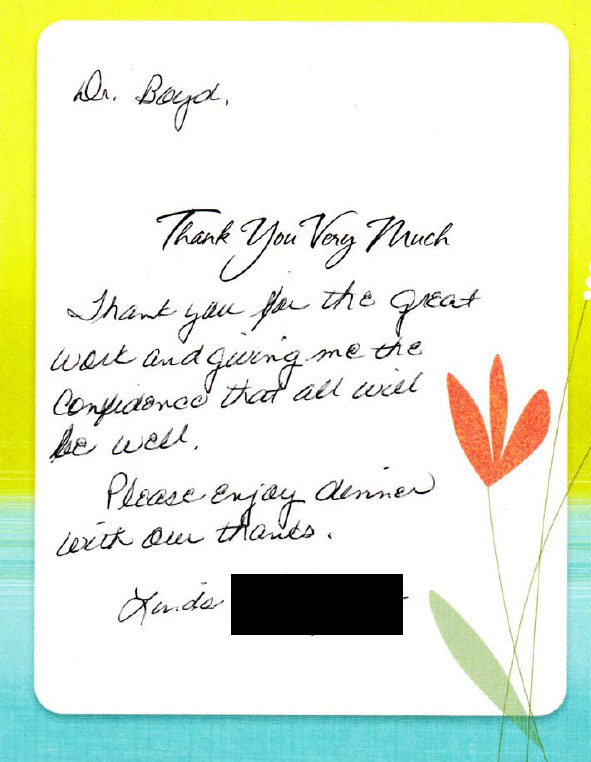 Dr. Boyd,
Thank You Very Much
Thank you for the great
work and giving me the
confidence that all will
be well.
Please enjoy dinner
with our thanks.
Linda